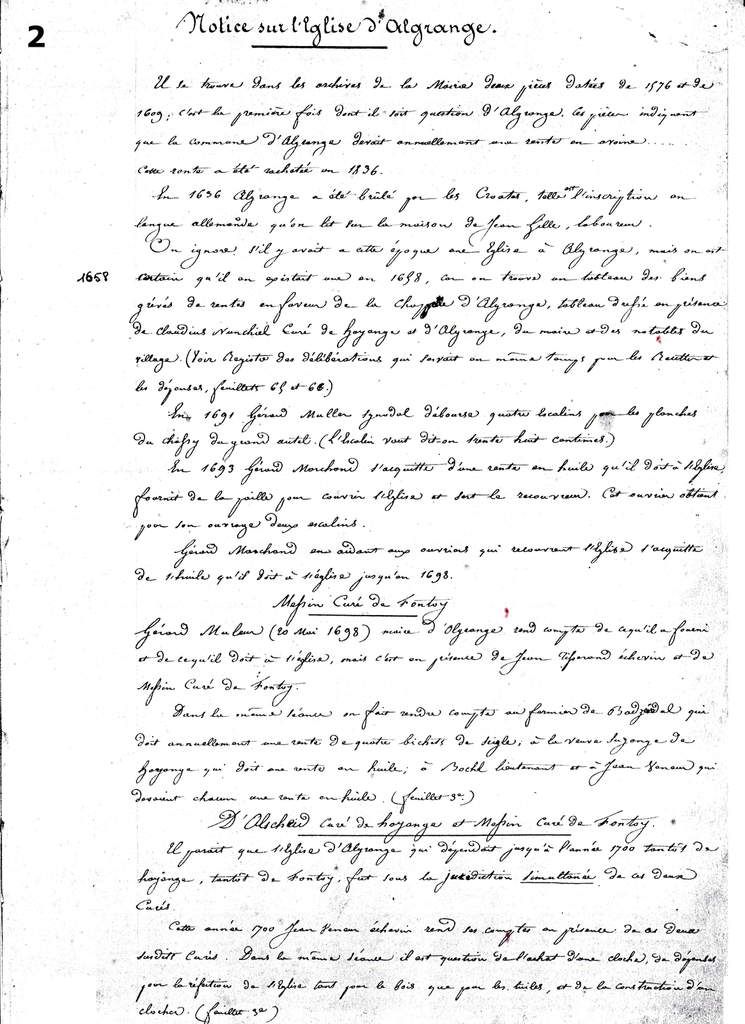 2
Notice sur l'Eglise d'Algrange.
Il se trouve dans les archives de la Mairie deux pièces datées de 1576 et de
1609; c'est la première fois dont il soit question d'Algrange. Ces pièces indiquent
que la commune d'Algrange devait annuellement une rente en avoine.....
Cette rente a été rachetée en 1836.
En 1636 Algrange a été brûlé par les Croates, telle est l'inscription en
langue allemande qu'on lit sur la maison de Jean Gille, laboureur.
On ignore s'il y avait a cette époque une Eglise à Algrange, mais on est
1658
certain qu'il en existait une en 1658, car on trouve un tableau des biens
grévés de rentes en faveur de la Chappelle d'Algrange, tableau dressé en présence
de Claudius Nunchiel Curé de hoyange et d'Algrange, du maire et des notables du
village. (Voir Registre des délibérations qui servait en même temps pour les Recettes et
les dépenses, feuillets 65 et 66.)
En 1691 Gérard Muller synodal débourse quatre escalins pour les planches
du chassy du grand autel. (L'Escalin vaut dit-on trente huit centimes.)
En 1693 Gérard Marchand s'acquitte d'une rente en huile qu'il doit à l'Eglise,
fournit de la paille pour couvrir l'Eglise et sert le recouvreur. Cet ouvrier obtient
pour son ouvrage deux escalins.
Gérard Marchand en aidant aux ouvriers qui recouvrent l'Eglise s'acquitte
de l'huile qu'il doit à l'église jusqu'en 1698.
Messin Curé de Fontoy
Gérard Muleur (20 Mai 1698) maire d'Algrange rend compte de ce qu'il a fourni
et de ce qu'il doit à l'église, mais c'est en présence de Jean Tisserand échevin et de
Messin Curé de Fontoy.
Dans la même séance on fait rendre compte au fermier de qui
doit annuellement une rente de quatre bichets de seigle; à la veuve Suzange de
hoyange qui doit une rente en huile; à Bochl lieutenant et à Jean Veneur qui
devaient chacun une rente en huile. (feuillet 3e.)
D'Alscheid Curé de hoyange et Messin Curé de Fontoy.
Il parait que l'Eglise d'Algrange qui dépendait jusqu'à l'année 1700 tantôt de
hayange, tantôt de Fontoy, fut sous la juridiction simultanée de ces deux
Curés.
Cette année 1700 Jean Veneur échevin rend ses comptes en présence de ces deux
susdits Curés. Dans la même séance il est question de l'achat d'une cloche, de dépenses
pour la réfection de l'Eglise tant pour le bois que pour les tuiles, et de la construction d'un
clocher. (feuillet 3e)